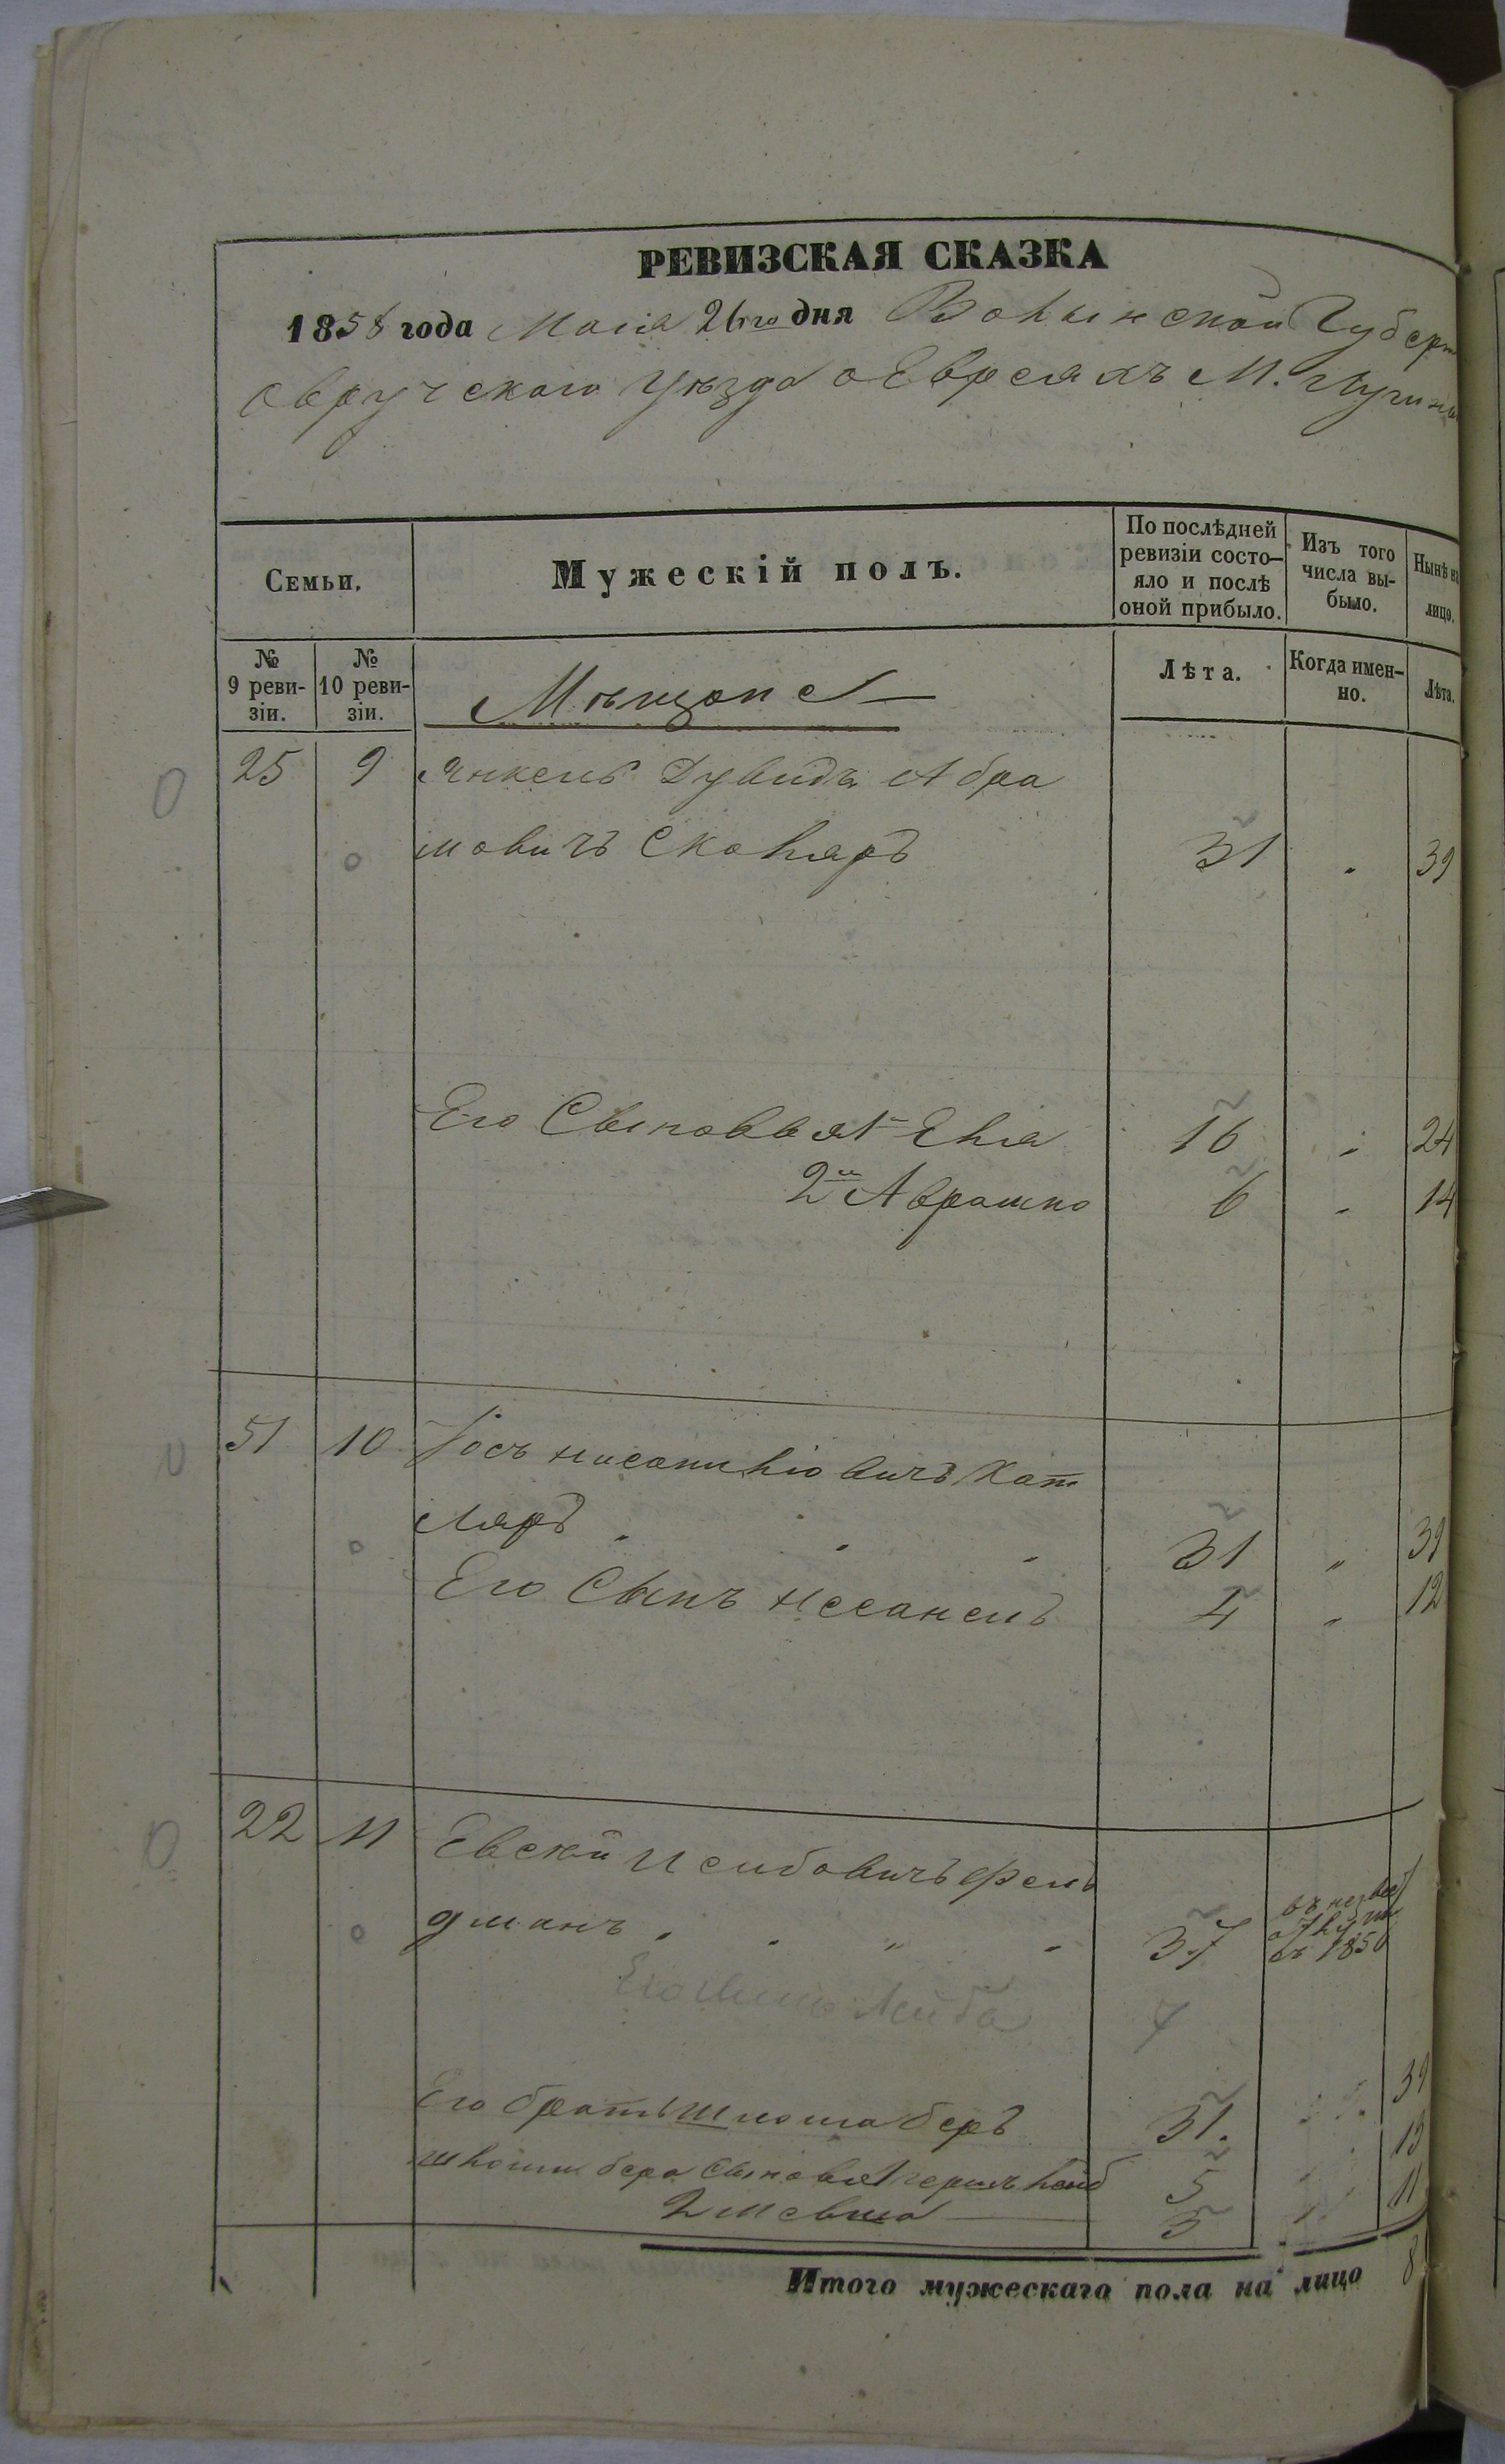 РЕВИЗСКАЯ СКАЗКА
1858 года Маія 26го дня Волынской Губерн
Овручскаго Уѣзда о Евреяхъ М. Лугины
Семьи.
Мужескій полъ.
По послѣдней ревизіи состо-
яло и послѣ оной прибыло.
Изъ того числа вы-
было.
Нынѣ на лицо.
№ 9 реви-
зіи.
№ 10 реви-
зіи.
Мѣщане
Лѣта.
Когда имен-
но.
Лѣта.
25 9 Янкель Дувидъ Абра
мовичъ Скляръ 31 " 39
Его Сыновья 1й Еля 16 " 24
2й Аврашко 6 " 14
51 10 Іось Хат
ляръ " " " 31 " 39
Его Сынъ 4 " 12
22 11 Евсей Лейбовичъ Фель
дманъ " " " " 37 1850
Его сынъ Лейба 7
Его братъ Шлома Беръ 31. " 39
Шломы Бера Сыновья 1 Гершъ Лейб 5 " 13
2 3 " 11
Итого мужескаго пола на лицо 8